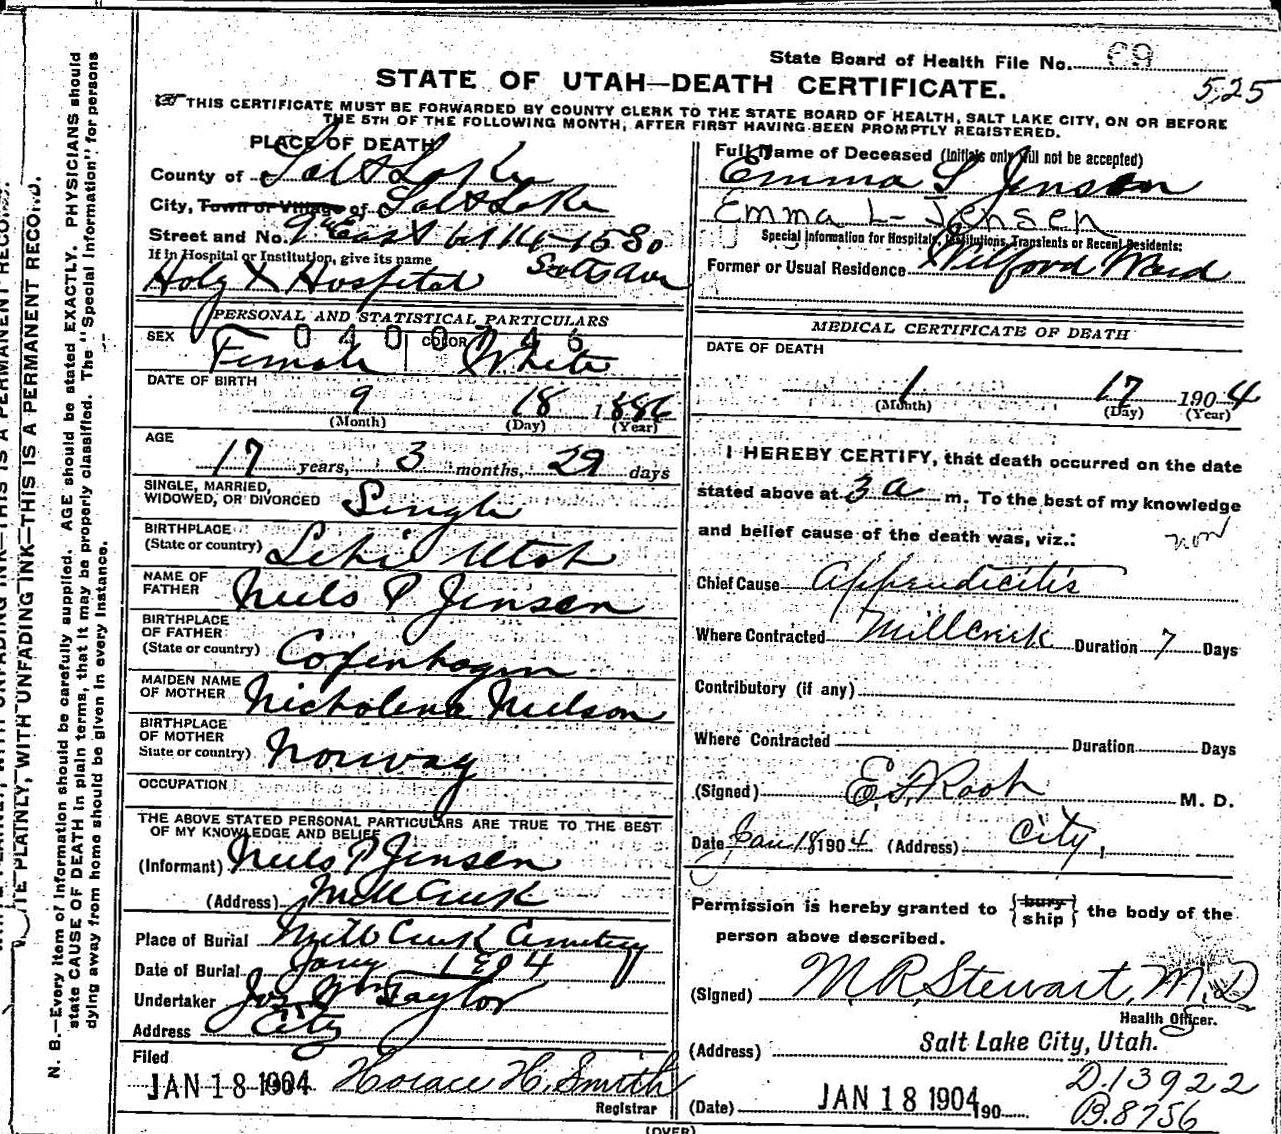 State Board of Health File No. 69
525
STATE OF UTAH—DEATH CERTIFICATE.
THIS CERTIFICATE MUST BE FORWARDED BY COUNTY CLERK TO THE STATE BOARD OF HEALTH, SALT LAKE CITY, ON OR BEFORE
THE 5TH OF THE FOLLOWING MONTH, AFTER FIRST HAVING BEEN PROMPTLY REGISTERED.
PLACE OF DEATH
County of Salt Lake
City, Town or Village of Salt Lake
Street and No. 9th East
If in Hospital or Institution, give its name
Holy X Hospital
PERSONAL AND STATISTICAL PARTICULARS
0400746
SEX Female COLOR White
DATE OF BIRTH
9 18 1886
(Month) (Day) (Year)
AGE
17 years, 3 months, 29 days
SINGLE, MARRIED,
WIDOWED, OR DIVORCED Single
BIRTHPLACE
(State or country) Lehi Utah
NAME OF
FATHER Niels P Jensen
BIRTHPLACE
OF FATHER
(State or country) Copenhagen
MAIDEN NAME
OF MOTHER Nicholena Nielson
BIRTHPLACE
OF MOTHER
State or country) Norway
OCCUPATION
THE ABOVE STATED PERSONAL PARTICULARS ARE TRUE TO THE BEST
OF MY KNOWLEDGE AND BELIEF
(Informant) Niels P Jensen
(Address) Mill Creek
Place of Burial Mill Creek Cemetery
Date of Burial Jany 1904
Undertaker Jos Wm Taylor
Address City
Filed
JAN 18 1904 Horace H. Smith
Registrar
Full Name of Deceased (Initials only will not be accepted)
Emma L Jensen
Emma L- Jensen
Special Information for Hospitals, Institutions, Transients or Recent Residents:
Former or Usual Residence Wilford Ward
MEDICAL CERTIFICATE OF DEATH
DATE OF DEATH
1 17 1904
(Month) (Day) (Year)
I HEREBY CERTIFY, that death occurred on the date
stated above at 3 a m. To the best of my knowledge
and belief cause of the death was, viz.:
Chief Cause Appendicitis
Where Contracted Mill Creek Duration 7 Days
Contributory (if any)
Where Contracted Duration Days
(Signed) M. D.
Date Jan 18 1904 (Address) City,
Permission is hereby granted to {bury
ship} the body of the
person above described.
(Signed) M. R. Stewart, M.D
Health Officer.
(Address) Salt Lake City, Utah.
D.13922
(Date) JAN 18 1904 190
B.8756
(OVER)
WRITE PLAINLY, WITH UNFADING INK—THIS IS A PERMANENT RECORD.
N. B.—Every item of information should be carefully supplied. AGE should be stated EXACTLY. PHYSICIANS should
state CAUSE OF DEATH in plain terms, that it may be properly classified. The "Special Information" for persons
dying away from home should be given in every instance.